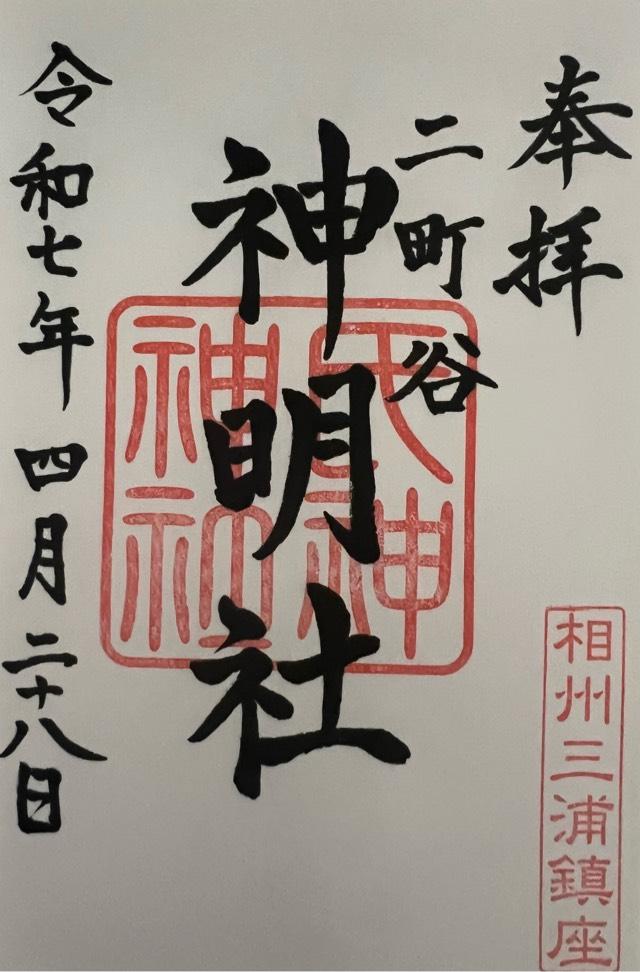 奉拝
二町谷
神明社
令和七年四月二十八日
相州三浦鎮座